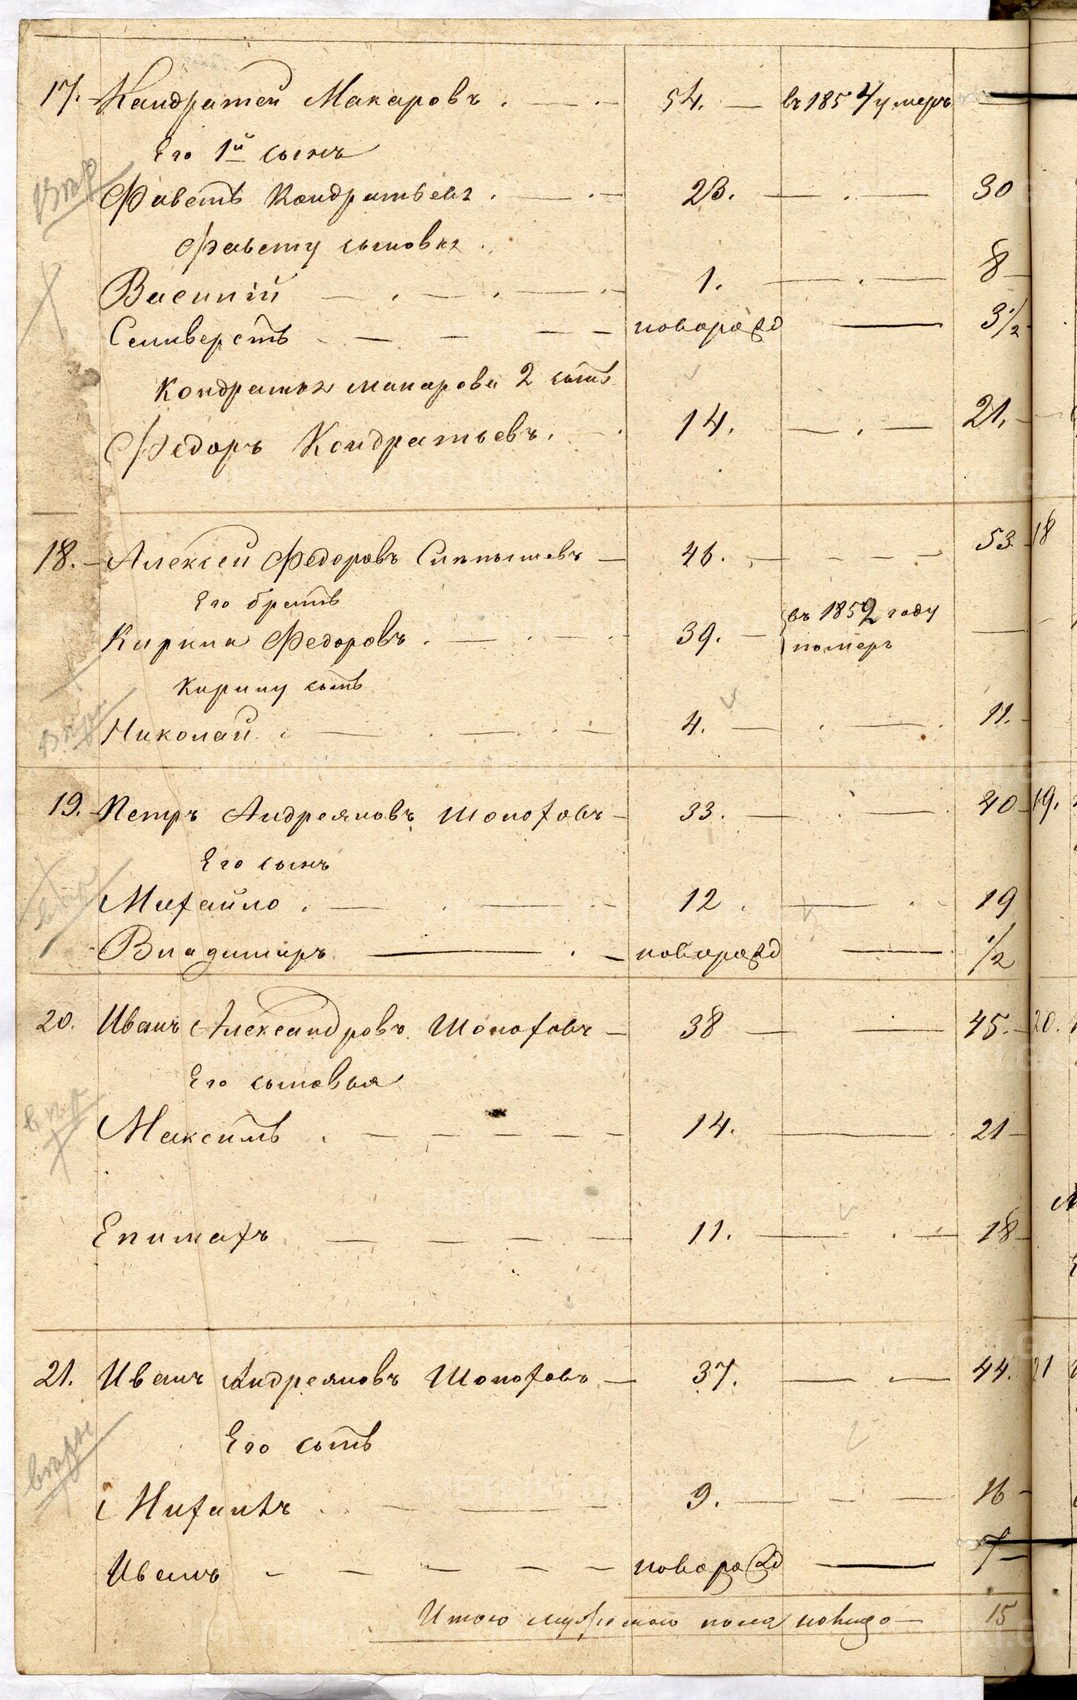 17. Кандратей Макаровъ. 54. въ 1854 умеръ
Его 1й сынъ
Фавстъ Кондратьевъ. 23. 30
Фавсту сыновья
Василій 1. 8
Селиверстъ новорозд 3½
Кондратья Макарова 2 сынъ
Федоръ Кондратьевъ. 14. 21.
18. Алексей Федоровъ 46. 53
Его братъ
Кирила Федоровъ. 39. въ 1852 году
померъ
Кирилу сынъ
Николай 4. 11.
19. Петръ Андреяновъ Шолоховъ 33. 40
Его сынъ
Михайло. 12. 19
Владимиръ новорозд ½
20. Иванъ Александровъ Шолоховъ 38 45.
Его сыновья
Максимъ. 14. 21
Епимахъ 11. 18
21. Иванъ Андреяновъ Шолоховъ 37. 44.
Его сынъ
Михаилъ 9. 16
Иванъ новорозд 7
Итого мужескаго пола 15
18
19.
20.
21